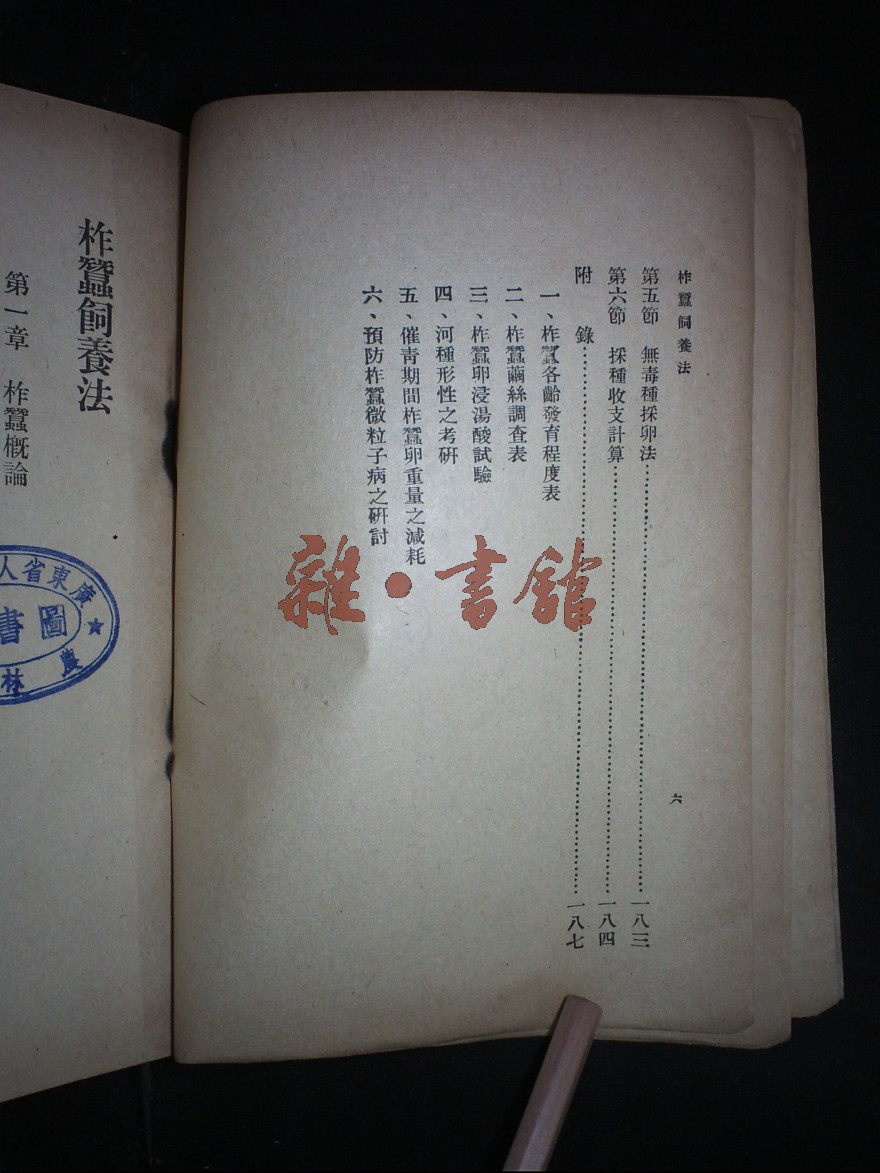 柞蠶飼養法
第五節　無毒種採卵法……………一八三
第六節　採種收支計算……………一八四
附　錄……………一八七
一、柞蠶各齡發育程度表
二、柞蠶繭絲調查表
三、柞蠶卵浸湯酸試驗
四、河種形性之考研
五、催青期間柞蠶卵重量之減耗
六、預防柞蠶微粒子病之研討
六
柞蠶飼養法
第一章　柞蠶概論
廣東省人
圖書
農林
雜·書館